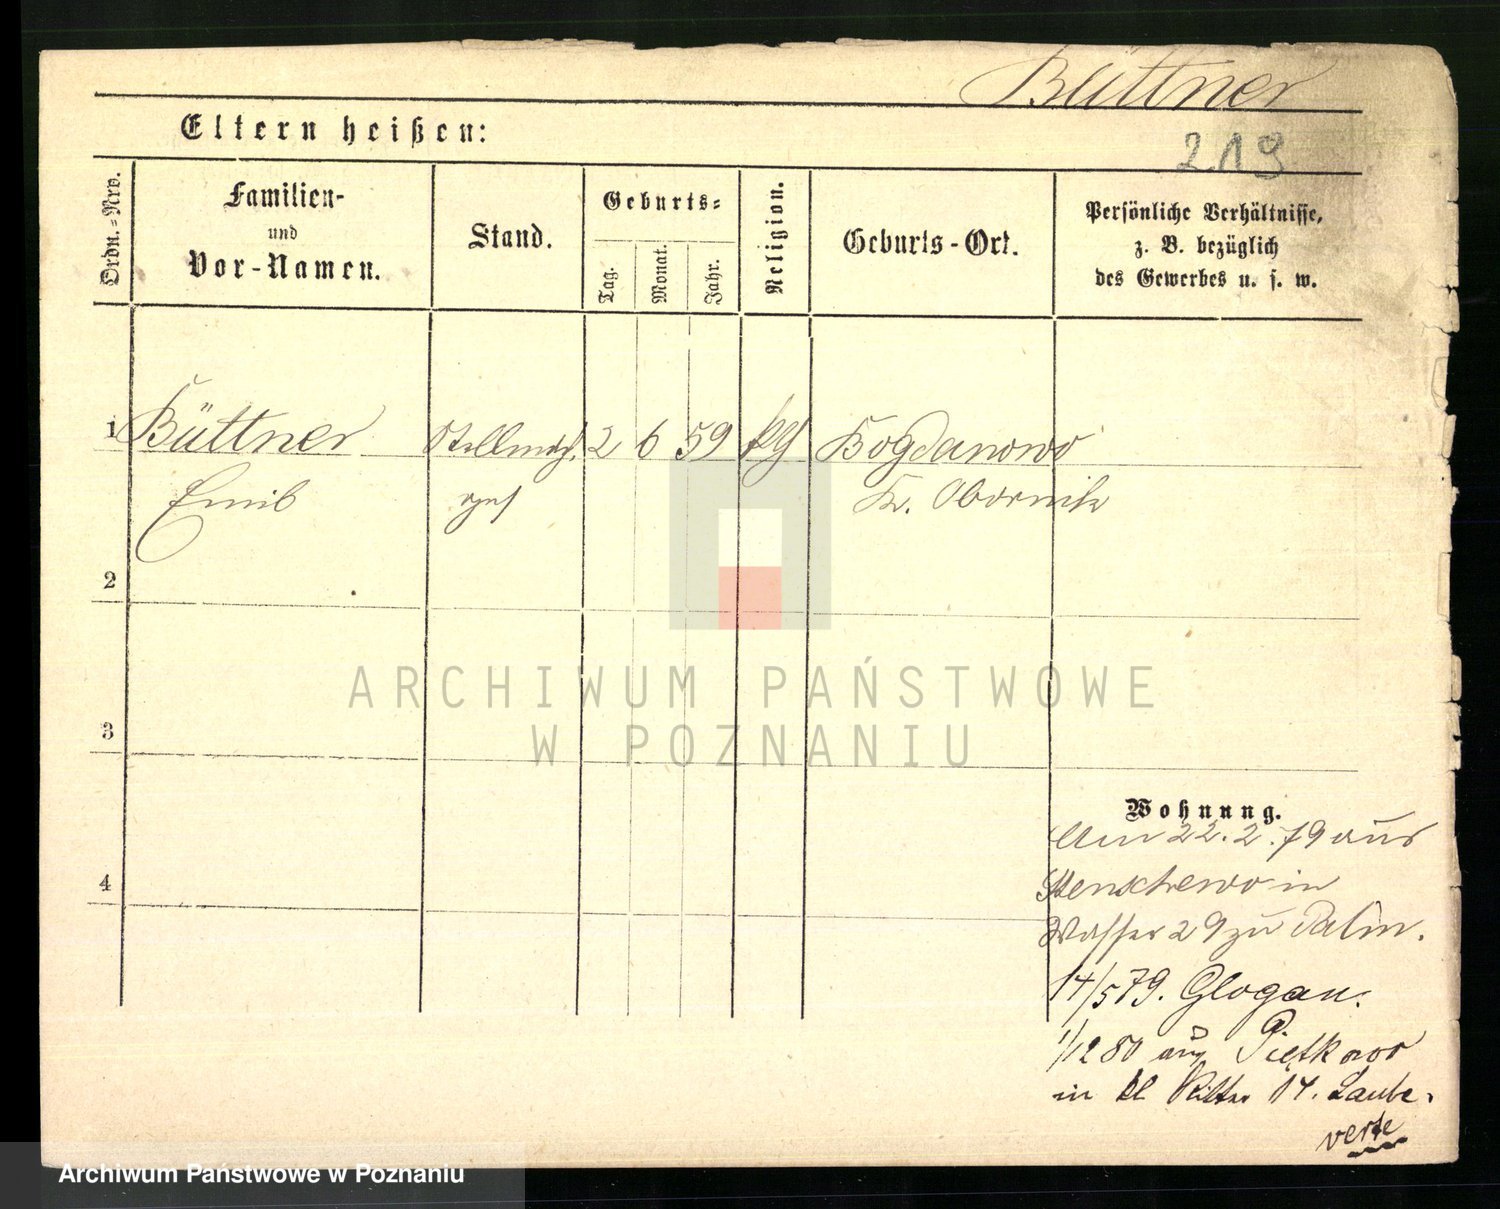 Büttner
219
Eltern heißen:
Ordn.-Nro.
Familien-
und
Vor-Namen.
Stand.
Geburts-
Tag.
Monat.
Jahr.
Religion.
Geburts-Ort.
Persönliche Verhältnisse,
z. B. bezüglich
des Gewerbes u. s. w.
1 Büttner Stellmch. 2 6 59 Bogdanowo
Emil Kr. Obornik
2
3
4
ARCHIWUM PAŃSTWOWE
W POZNANIU
Wohnung.
Am 22.2.79 aus
in
Wasser 29 zu
14/5 79. Glogau.
1/12 80 aus
in kl Ritter 14. Laube.
verte
Archiwum Państwowe w Poznaniu